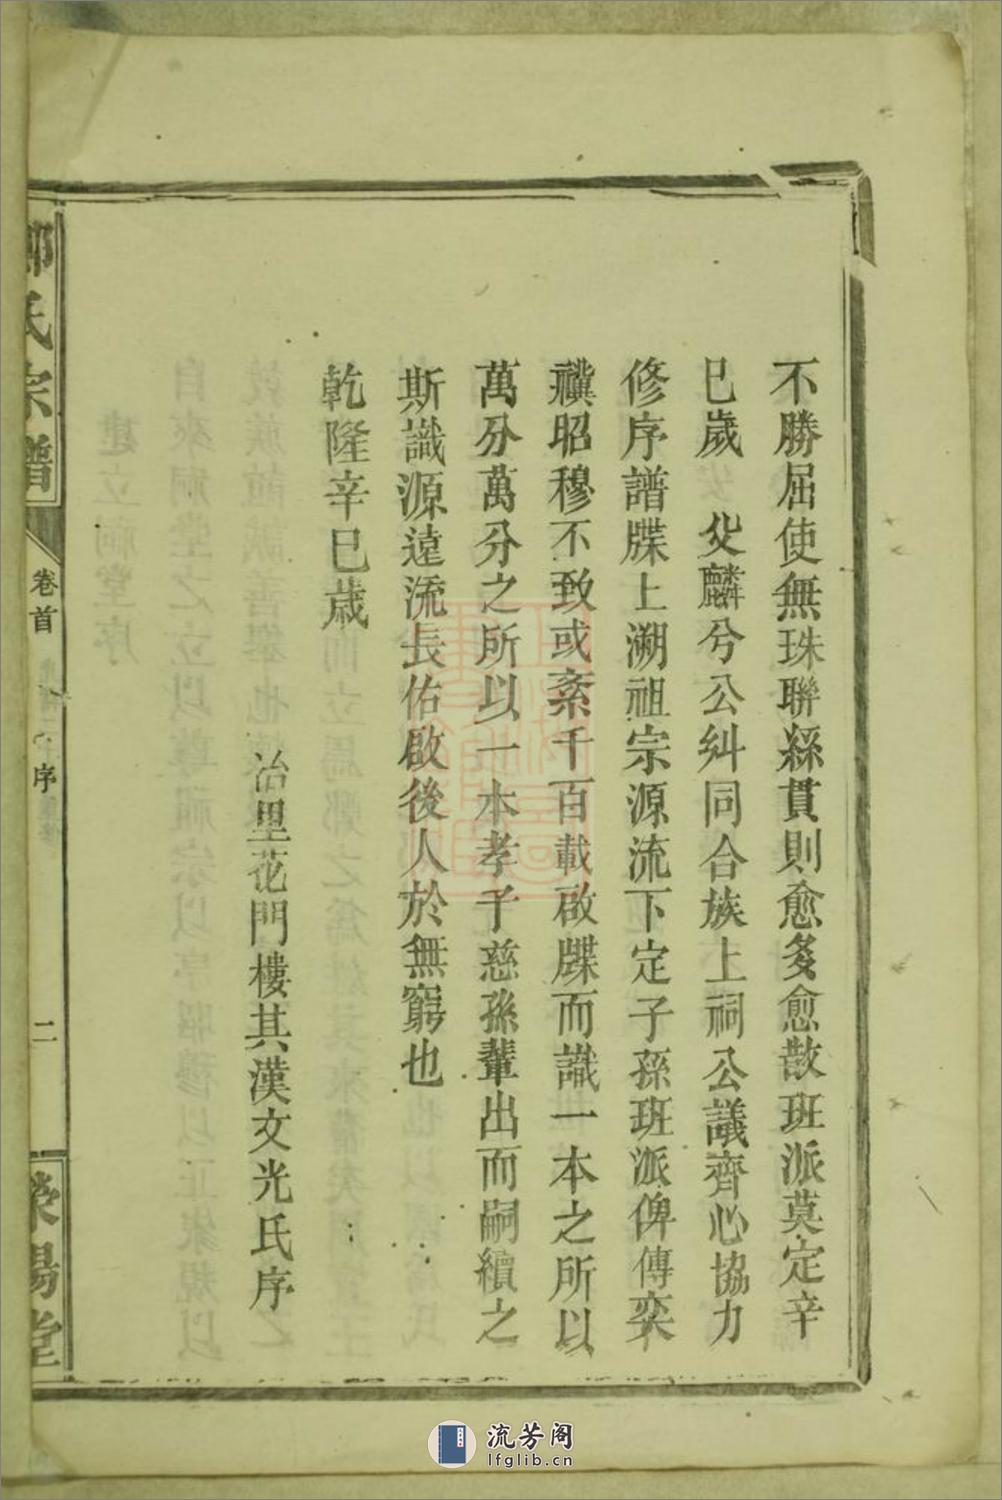 不勝屈使無珠聯繇貫則愈多愈散班派莫定辛
巳歲 父麟兮公糾同合族上祠公議齊心協力
修序譜牒上溯祖宗源流下定子孫班派俾傳奕
禩昭穆不致或紊千百載啟牒而識一本之所以
萬分萬分之所以一本孝子慈孫輩出而嗣續之
斯識源遠流長佑啟後人於無窮也
乾隆辛巳歲
冶里花門樓其漢文光氏序
氏宗譜
卷首
序
二
滎陽堂
流芳阁
lfglib.cn